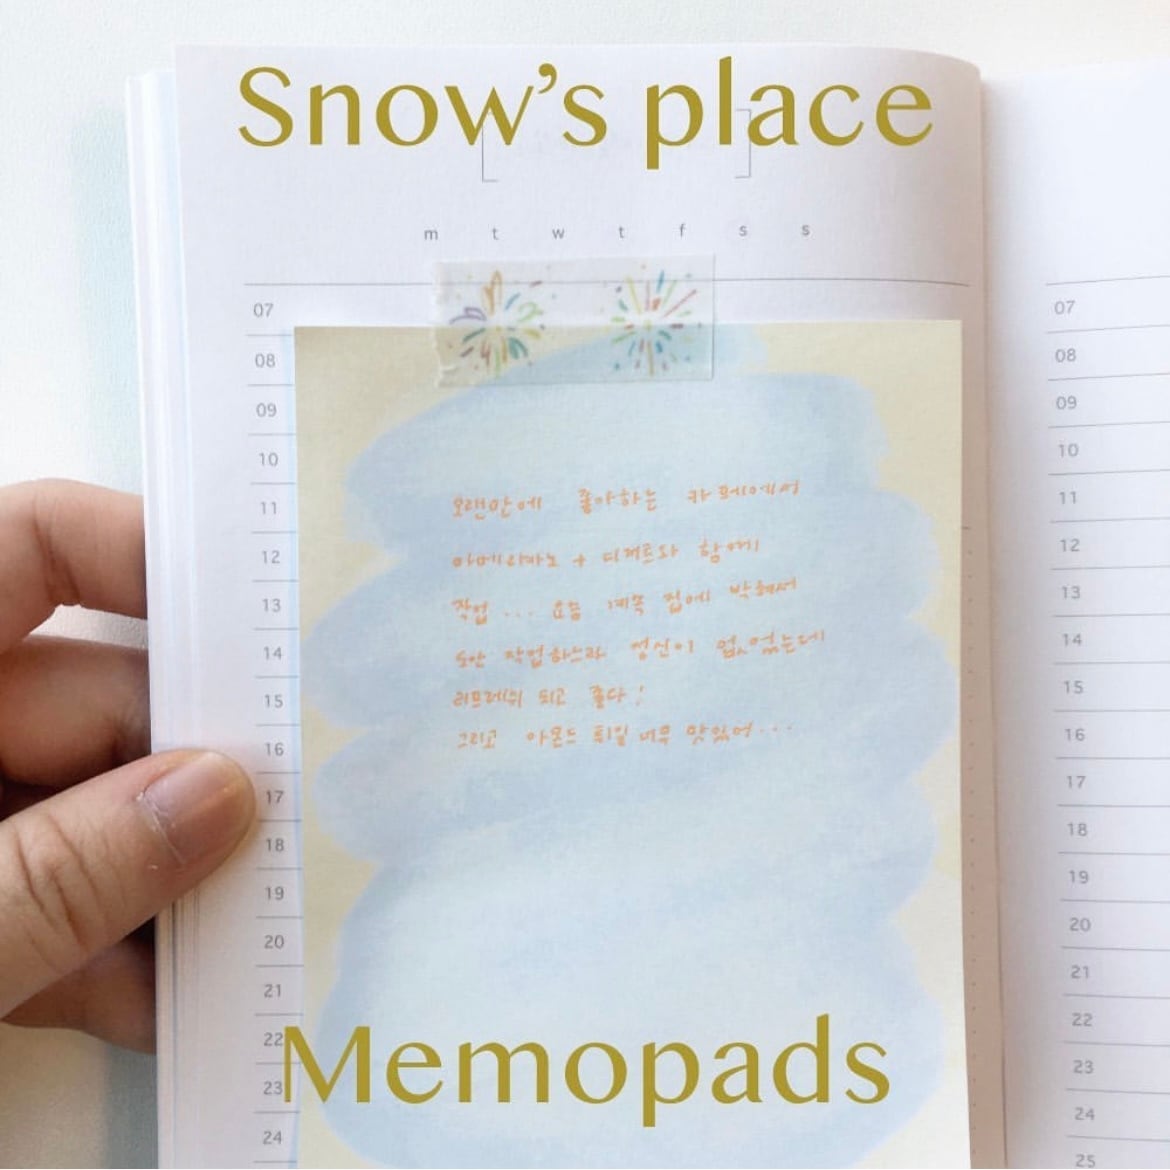 Snow's place
m t w t f s s
07
08
09
10
11
12
13
14
15
16
17
18
19
20
21
22
23
24
오랜만에 좋아하는 카페에서
아메리카노 + 디저트와 함께
작업 ... 요즘 계속 집에 박혀서
작업하느라 정신이 없었는데
리프레쉬 되고 좋다!
그리고 아몬드 튀일 너무 맛있어...
Memopads
07
08
09
10
11
12
13
14
15
16
17
18
19
20
21
22
23
24
25